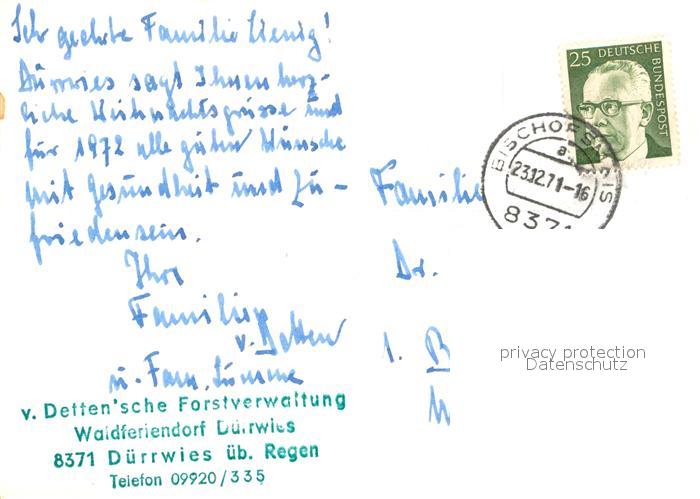 Sehr geehrte Familie Lienig!
Dürrwies sagt Ihnen herz-
liche Weihnachtsgrüsse und
für 1972 alle guten Wünsche
mit Gesundheit und Zu-
friedensein.
Ihre
Familien
v. Detten
u. Fam.
v. Detten'sche Forstverwaltung
Waldferiendorf Dürrwies
8371 Dürrwies üb. Regen
Telefon 09920/335
25 DEUTSCHE
BUNDESPOST
BISCHOFSMAIS
a
23.12.71-16
8371
Familie
Dr.
1. B
privacy protection
Datenschutz